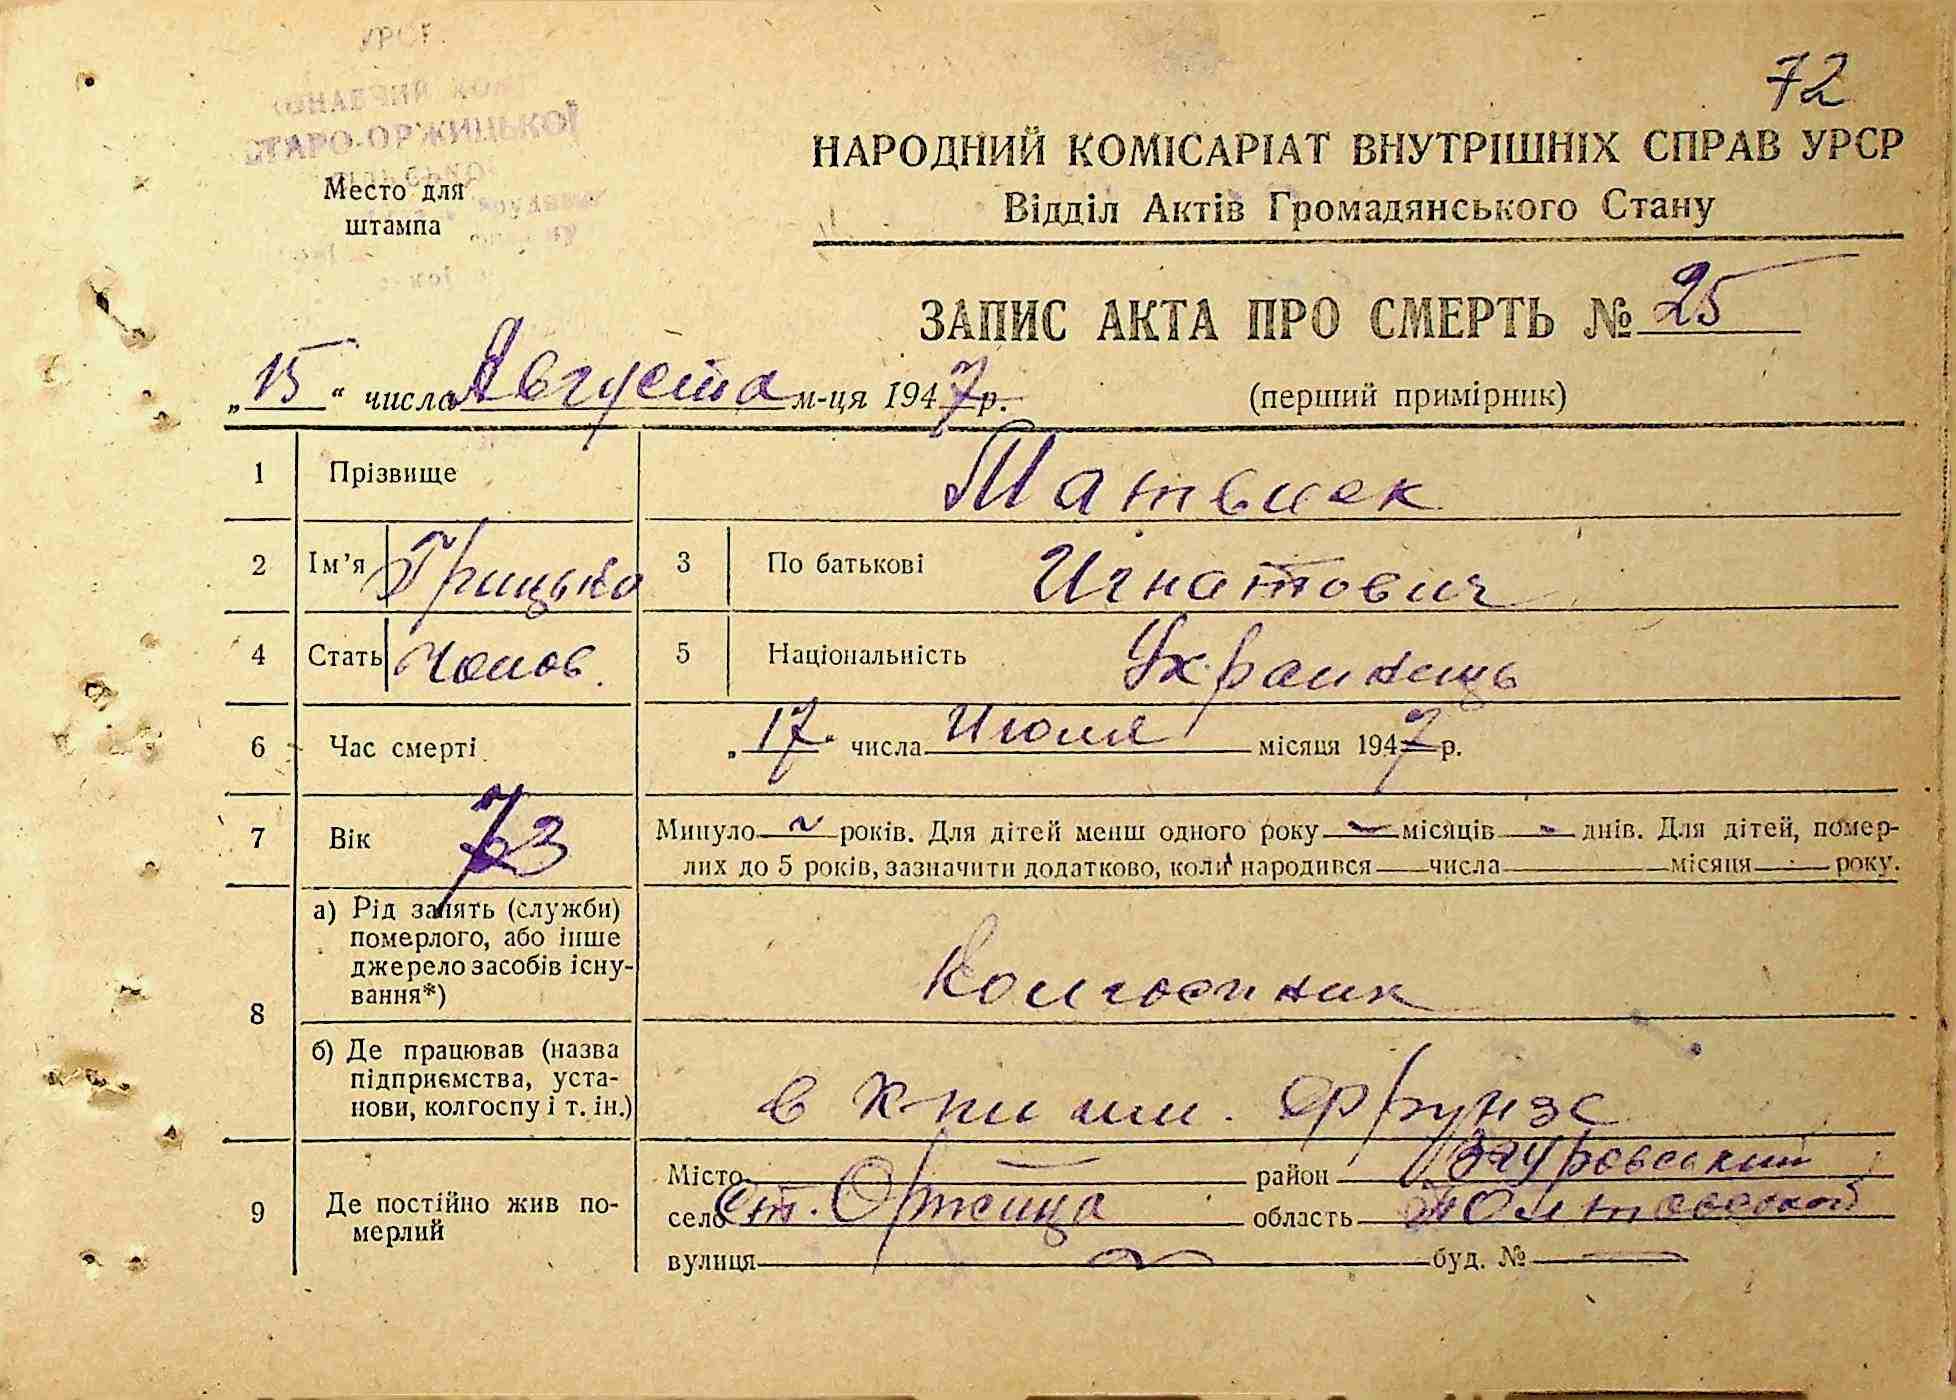 УРСР
СТАРО-ОРЖИЦЬКОЇ
Место для
штампа
72
НАРОДНИЙ КОМІСАРІАТ ВНУТРІШНІХ СПРАВ УРСР
Відділ Актів Громадянського Стану
ЗАПИС АКТА ПРО СМЕРТЬ № 25
„15“ числа Августа м-ця 1947 р.
(перший примірник)
1 Прізвище Матвиек
2 Ім'я Грицько 3 По батькові Игнатович
4 Стать Чолов. 5 Національність Украинець
6 Час смерті „17. числа Июля місяця 1947 р.
7 Вік 73 Минуло ~ років. Для дітей менш одного року — місяців - днів. Для дітей, помер-
лих до 5 років, зазначити додатково, коли народився — числа — місяця — року.
8 а) Рід занять (служби)
померлого, або інше
джерело засобів існу-
вання*)
Колгоспник
б) Де працював (назва
підприємства, уста-
нови, колгоспу і т. ін.)
в к-пи им. Фрунзе
9 Де постійно жив по-
мерлий
Місто — район Згуровський
село Ст. Оржица область Полтавской
вулиця — буд. № —